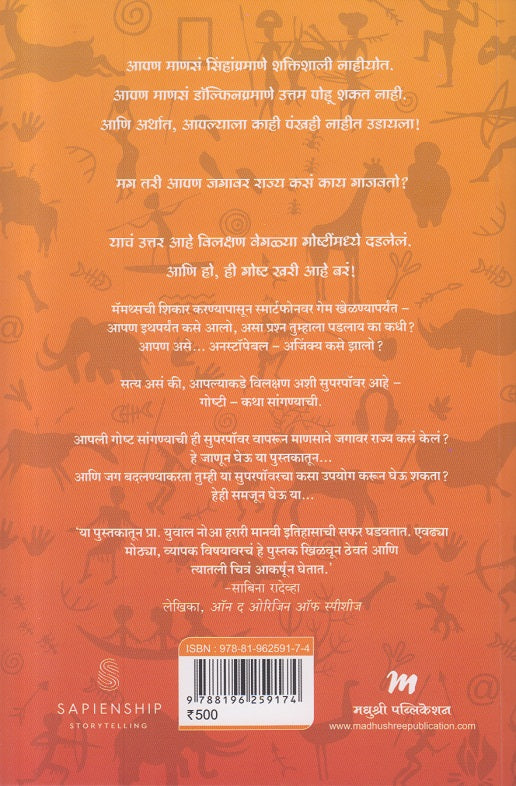 आपण माणसं सिंहांप्रमाणे शक्तिशाली नाहीयोत.
आपण माणसं डॉल्फिनप्रमाणे उत्तम पोहू शकत नाही.
आणि अर्थात, आपल्याला काही पंखही नाहीत उडायला!
मग तरी आपण जगावर राज्य कसं काय गाजवतो?
याचं उत्तर आहे विलक्षण वेगळ्या गोष्टींमध्ये दडलेलं.
आणि हो, ही गोष्ट खरी आहे बरं!
मॅमथ्सची शिकार करण्यापासून स्मार्टफोनवर गेम खेळण्यापर्यंत –
आपण इथपर्यंत कसे आलो, असा प्रश्न तुम्हाला पडलाय का कधी?
आपण असे... अनस्टॉपेबल – अजिंक्य कसे झालो?
सत्य असं की, आपल्याकडे विलक्षण अशी सुपरपॉवर आहे –
गोष्टी – कथा सांगण्याची.
आपली गोष्ट सांगण्याची ही सुपरपॉवर वापरून माणसाने जगावर राज्य कसं केलं?
हे जाणून घेऊ या पुस्तकातून...
आणि जग बदलण्याकरता तुम्ही या सुपरपॉवरचा कसा उपयोग करून घेऊ शकता?
हेही समजून घेऊ या...
'या पुस्तकातून प्रा. युवाल नोआ हरारी मानवी इतिहासाची सफर घडवतात. एवढ्या
मोठ्या, व्यापक विषयावरचं हे पुस्तक खिळवून ठेवतं आणि
त्यातली चित्रं आकर्षून घेतात.'
–साबिना रादेव्हा
लेखिका, ऑन द ओरिजिन ऑफ स्पीशीज
ISBN : 978-81-962591-7-4
9 788196 259174
₹500
SAPIENSHIP
STORYTELLING
m
मधुश्री पब्लिकेशन
www.madhushreepublication.com